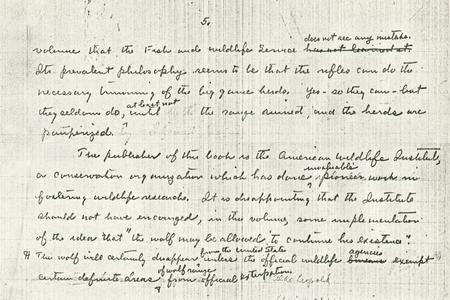 5.
does not see any mistake.
volume that the Fish and Wildlife Service has not learned it.
Its prevalent philosophy seems to be that the rifles can do the
necessary trimming of the big game herds. Yes - so they can - but
at least not
they seldom do, until the range ruined, and the herds are
pauperized.
The publisher of this book is the American Wildlife Institute,
invaluable
a conservation organization which has done pioneer work in
fostering wildlife research. It is disappointing that the Institute
should not have encouraged, in this volume, some implementation
of the idea that "the wolf may be allowed to continue his existence".
from the United States agencies
The wolf will certainly disappear unless the official wildlife bureaus exempt
of wolf range
certain definite areas from official extirpation. Aldo Leopold